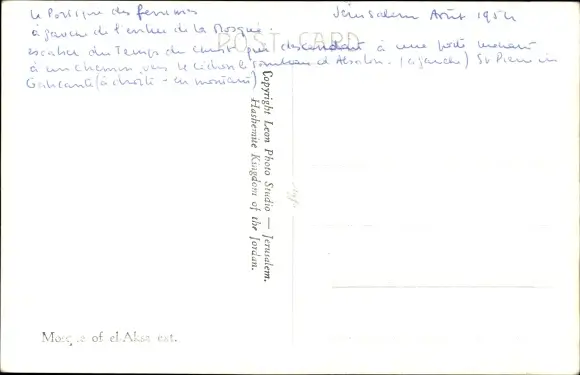 le Portique des femmes
Jérusalem Août 1954
à gauche de l'entrée de la Mosquée.
escalier du Temps du Christ qui descendant à une porte menant
à un chemin vers le Cédron le Tombeau d'Absalon. (à gauche) St Pierre in
Gallicante (à droite - en montant)
POST CARD
Copyright Leon Photo Studio — Jerusalem.
Hashemite Kingdom of the Jordan.
Mosque of el-Aksa ext.